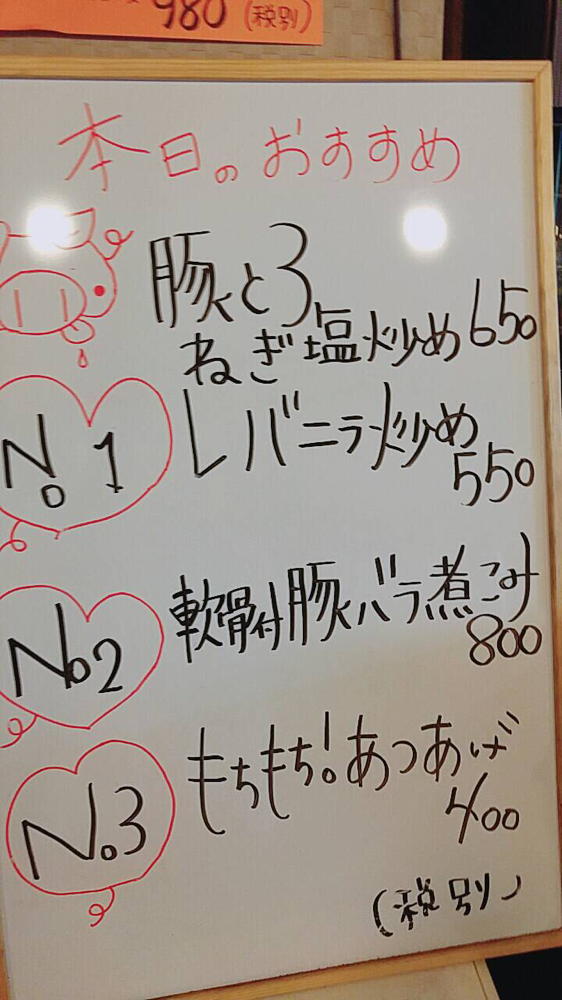 980(税別)
本日のおすすめ
豚とろ
ねぎ塩炒め 650
No1
レバニラ炒め
550
No2
軟骨付豚バラ煮こみ
800
No.3
もちもち!あつあげ
400
(税別)